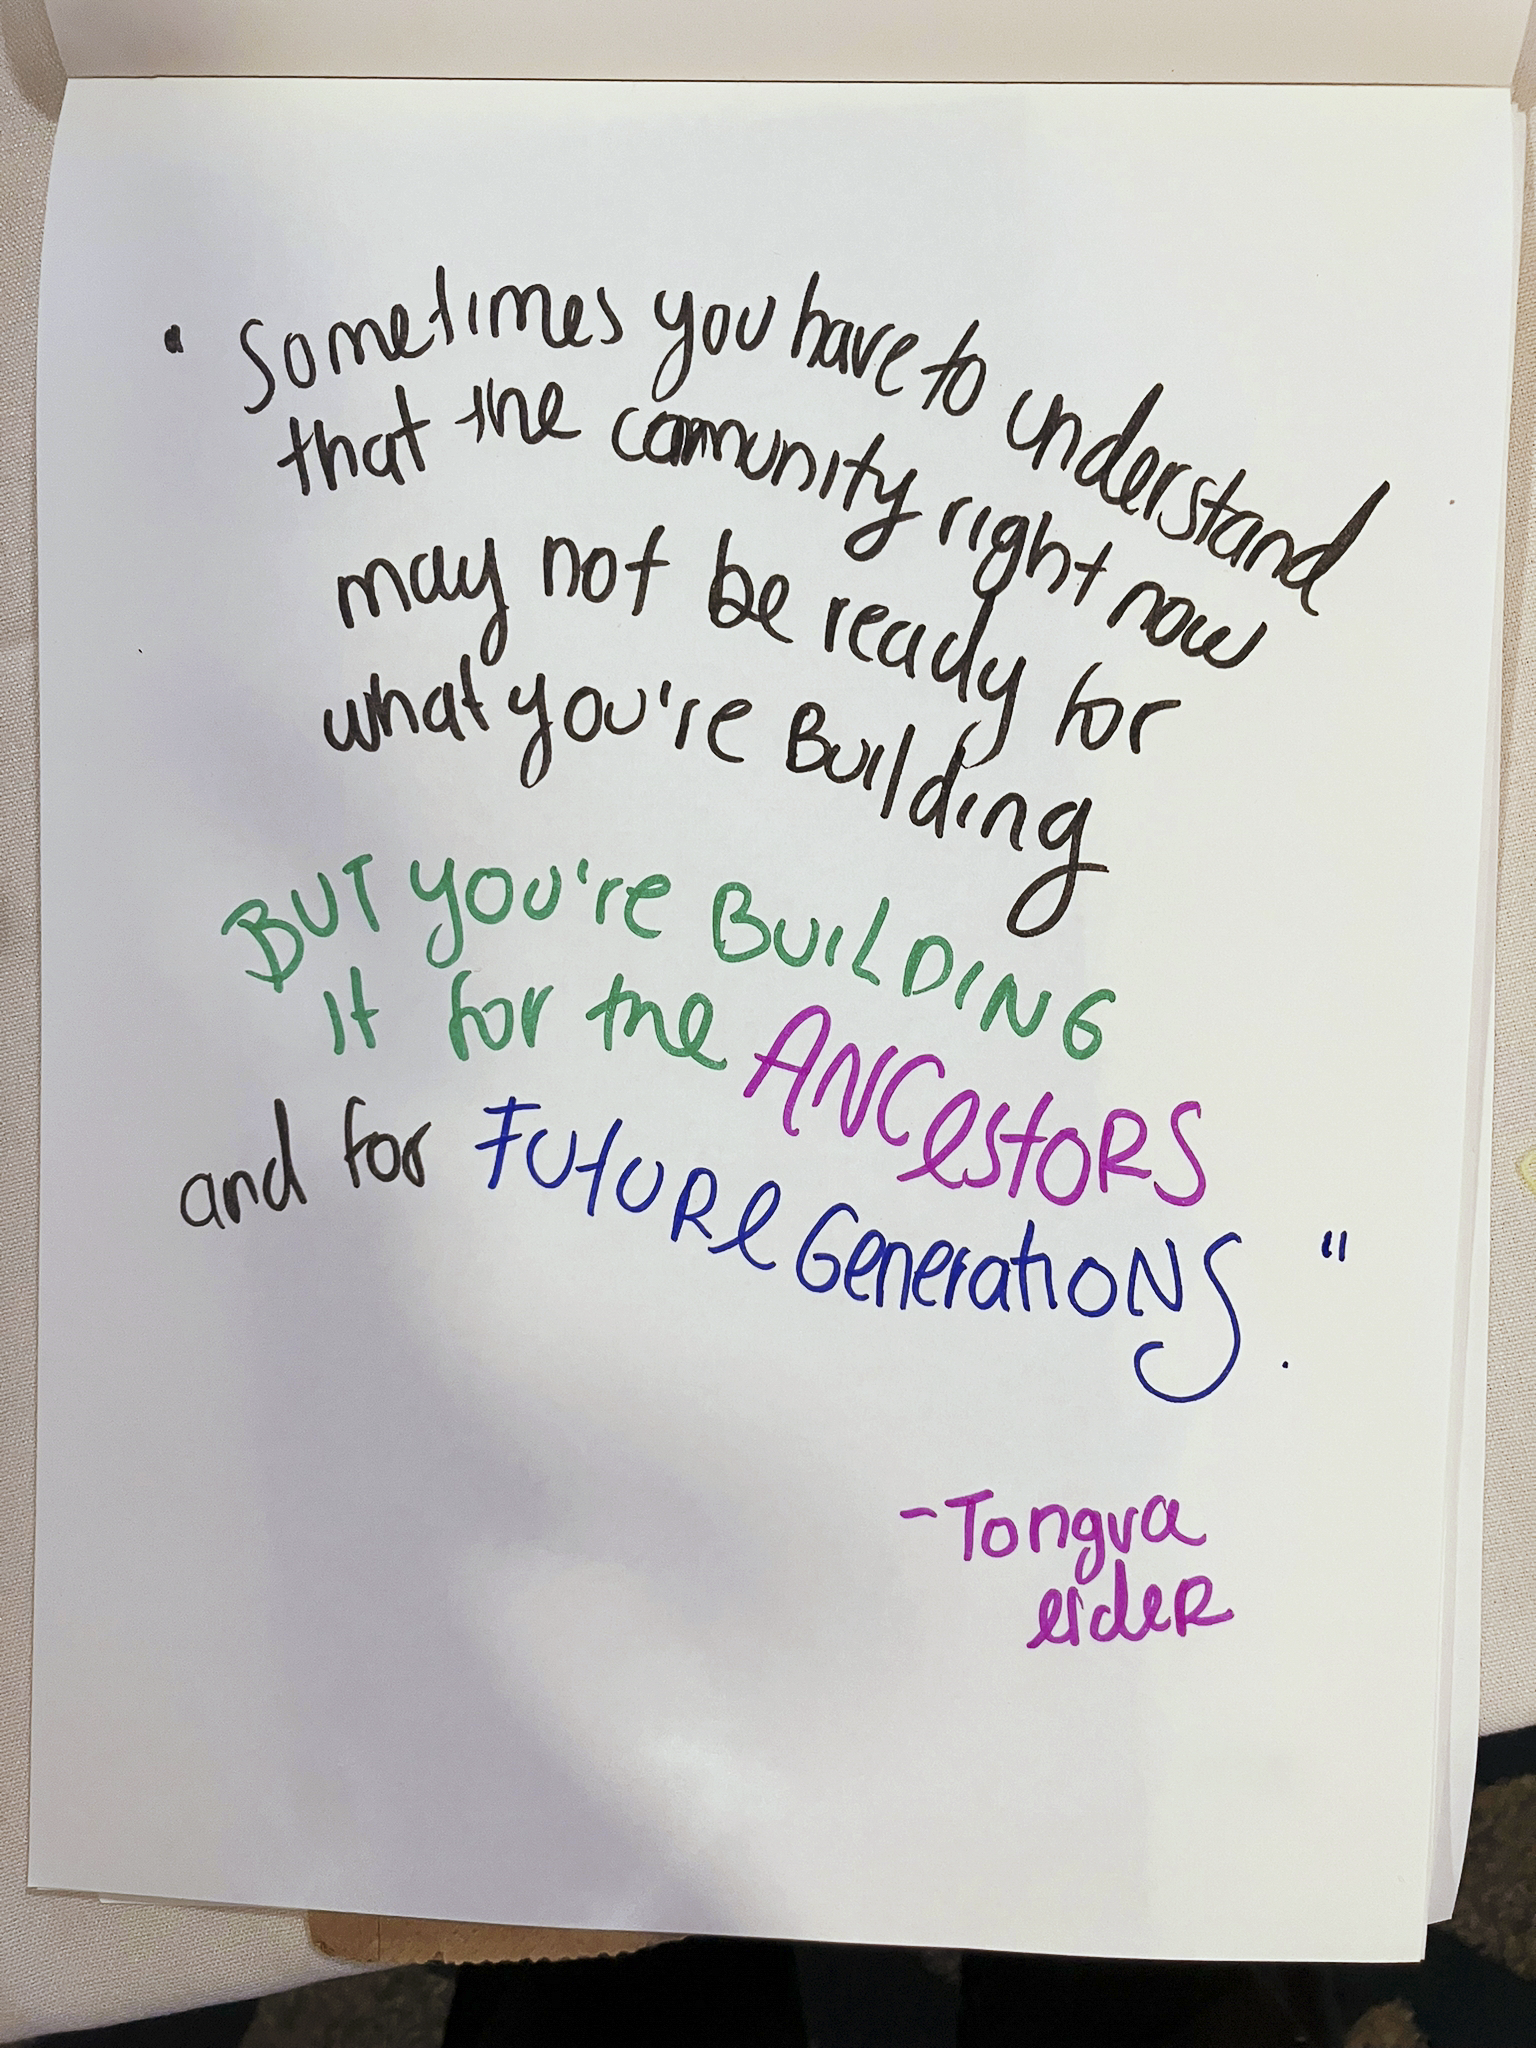 " Sometimes you have to understand
that the community right now
may not be ready for
what you're Building
BUT you're BUILDING
it for the ANCestORS
and for FUTURe GenerationS. "
- Tongva
elder